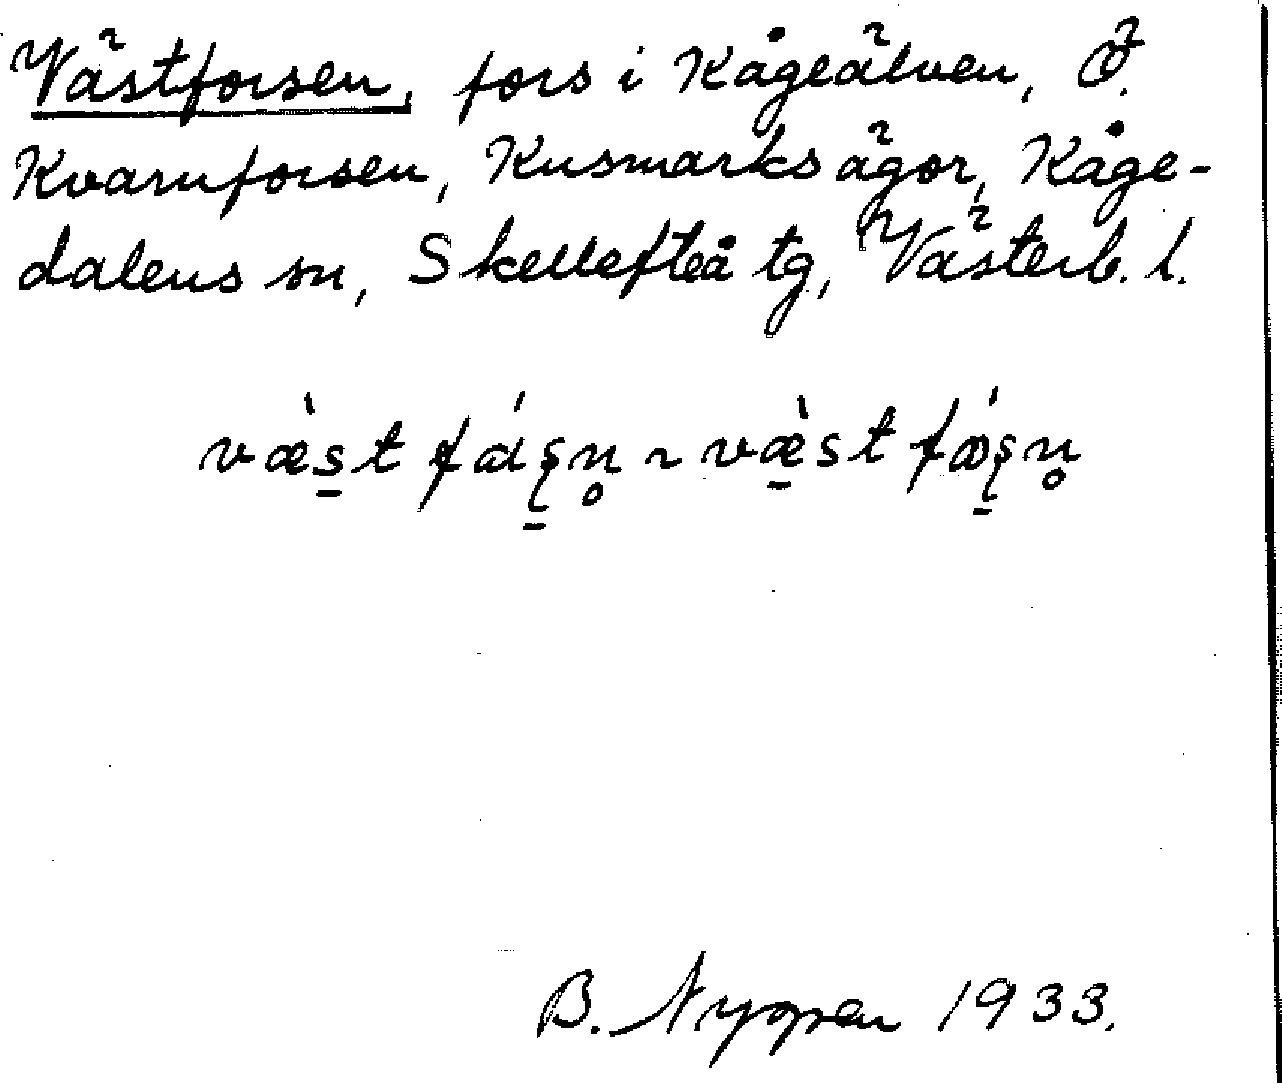 Västforsen, fors i Kågeälven, Ö.
Kvarnforsen, Kusmarks ägor, Kåge-
dalens sn, Skellefteå tg, Västerb. l.
væ̀s̱t fáʂ̱n̥ ~ væ̱̀st fǽʂ̱n̥
B. Nygren 1933.